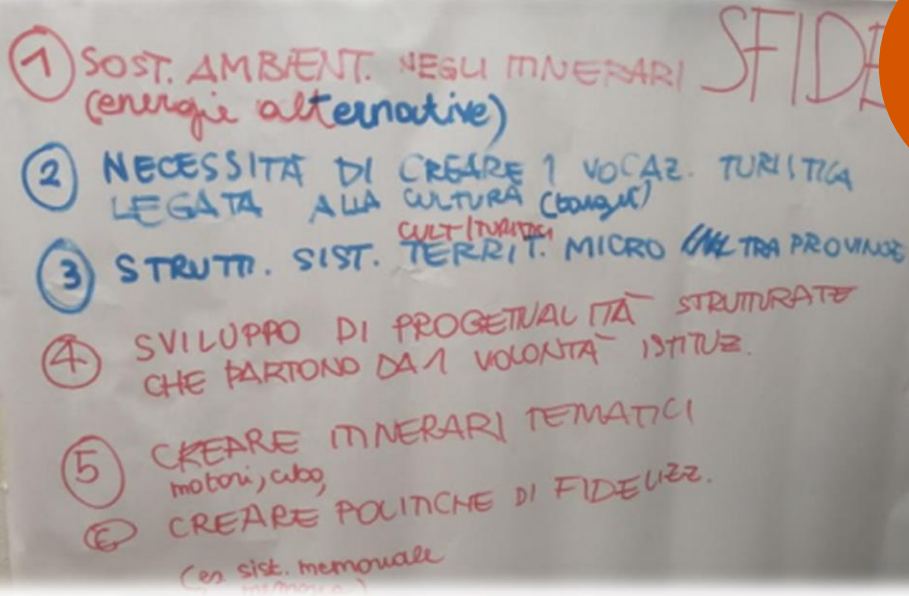 SFIDE
1 SOST. AMBIENT. NEGLI ITINERARI
(energie alternative)
2 NECESSITÀ DI CREARE 1 VOCAZ. TURISTICA
LEGATA ALLA CULTURA
CULT/TURISTICI
3 STRUTT. SIST. TERRIT. MICRO TRA PROVINCE
4 SVILUPPO DI PROGETTUALITÀ STRUTTURATE
CHE PARTONO DA 1 VOLONTÀ ISTITUZ.
5 CREARE ITINERARI TEMATICI
motori, cibo,
6 CREARE POLITICHE DI FIDELIZZ.
(es. sist. memoriale